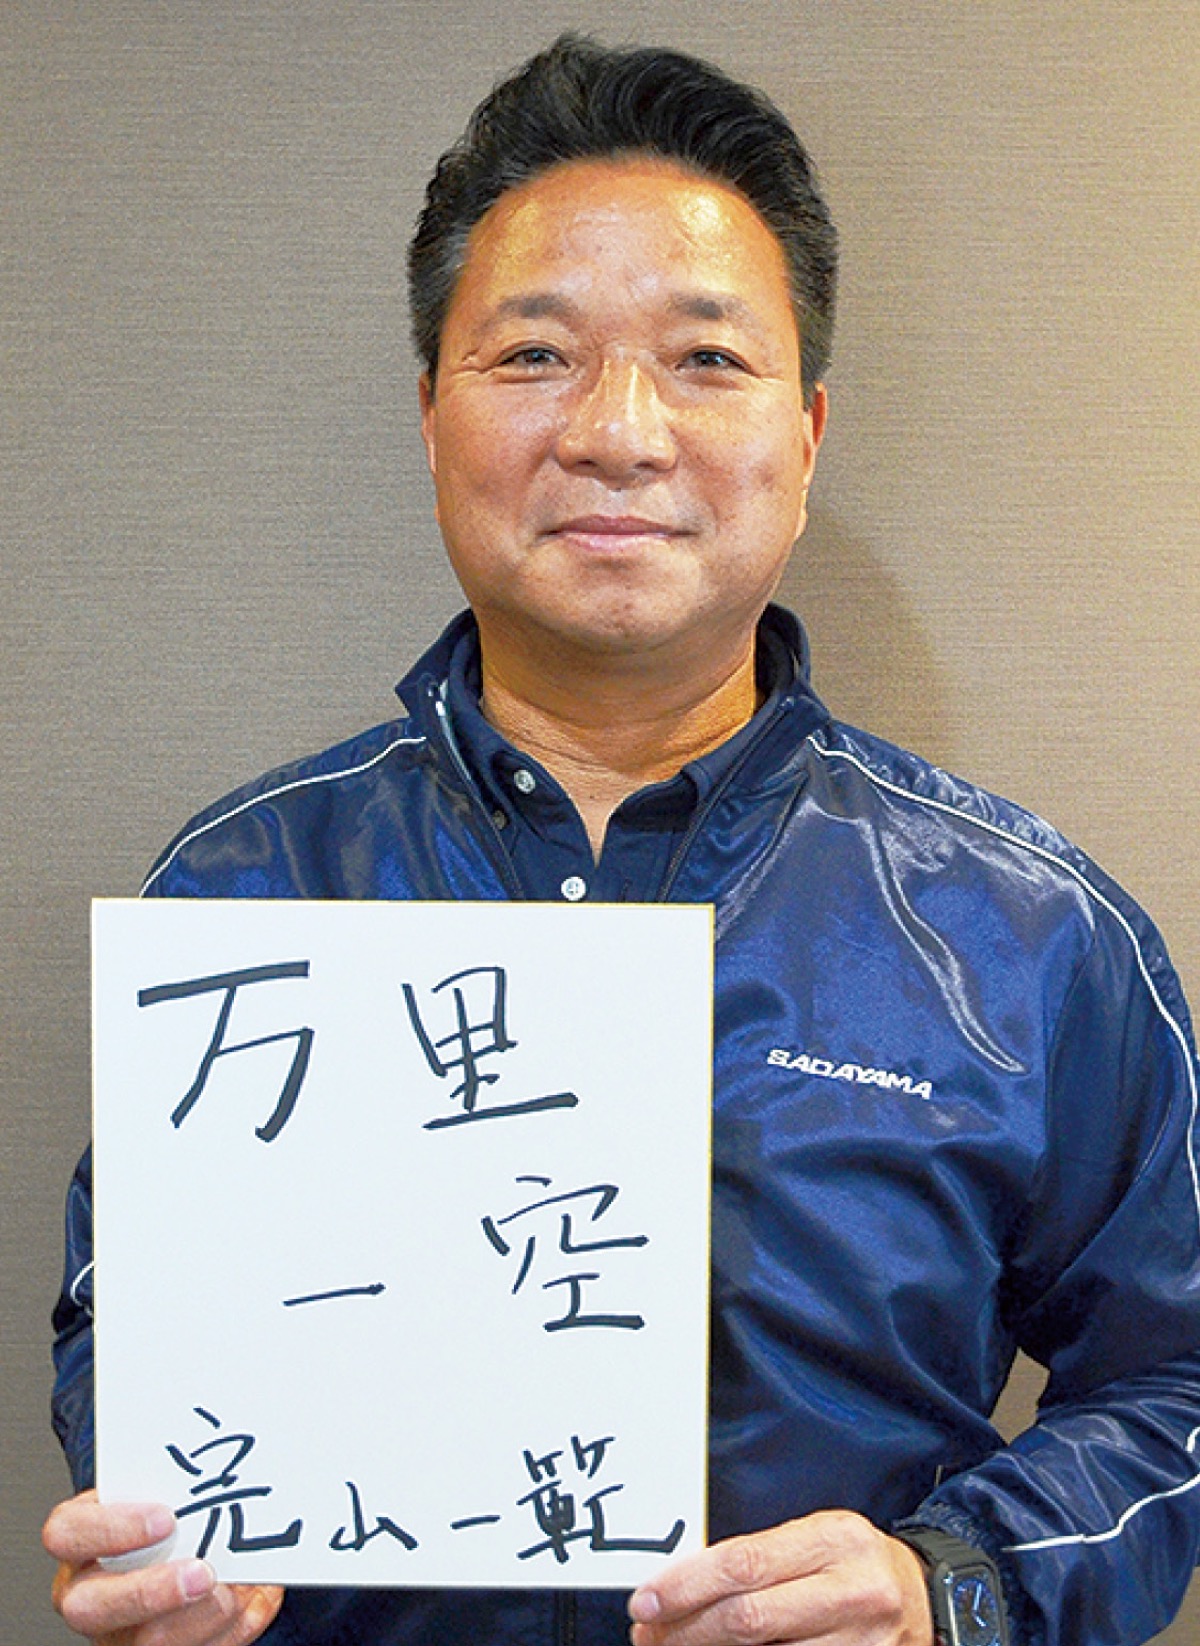 万里
一空
完山一範
SADAYAMA